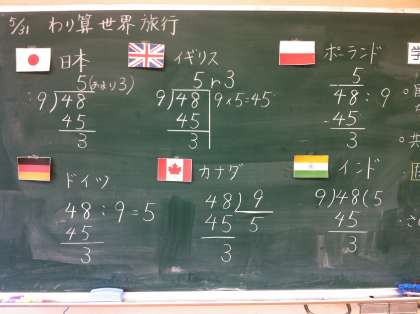 5/31 わり算世界旅行
日本
5(あまり3)
9)48
45
3
イギリス
5 r 3
9)48 9×5=45
45
3
ポーランド
5
48:9
-45
3
ドイツ
48:9=5
45
3
カナダ
48)9
45 5
3
インド
9)48(5
45
3
学